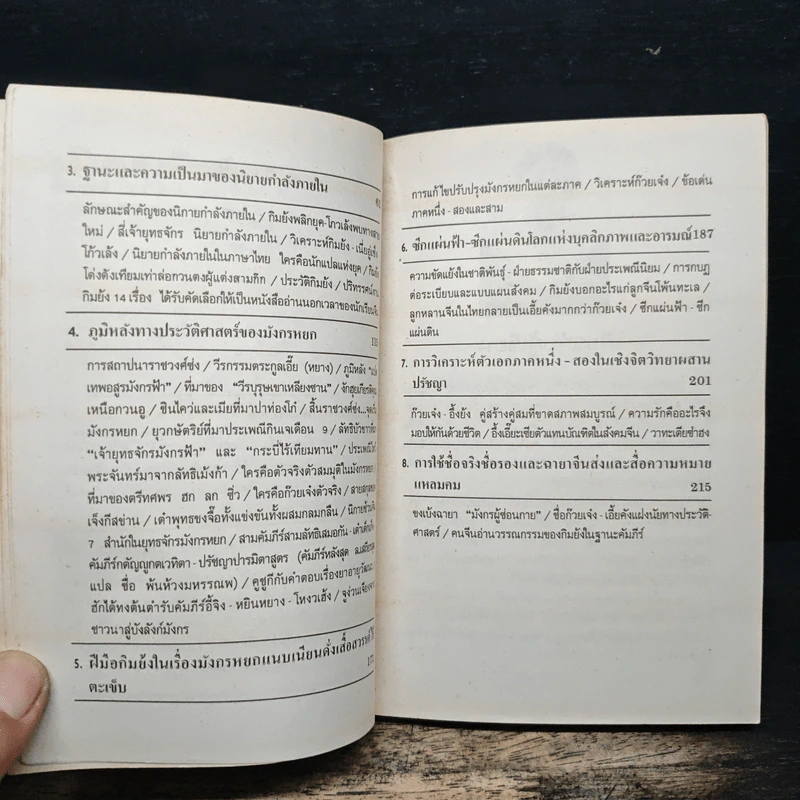 3. ฐานะและความเป็นมาของนิยายกำลังภายใน
ลักษณะสำคัญของนิกายกำลังภายใน / กิมย้งพลิกยุค-โกวเล้งพบทางสาย
ใหม่ / สี่เจ้ายุทธจักร นิยายกำลังภายใน / วิเคราะห์กิมย้ง - เนี่ยอู้เซ็ง
โก้วเล้ง / นิยายกำลังภายในในภาษาไทย ใครคือนักแปลแห่งยุค / กิมย้ง
โด่งดังเทียมเท่าล่อกวนตงผู้แต่งสามก๊ก / ประวัติกิมย้ง / ปริทรรศน์งาน
กิมย้ง 14 เรื่อง ได้รับคัดเลือกให้เป็นหนังสืออ่านนอกเวลาของนักเรียน
4. ภูมิหลังทางประวัติศาสตร์ของมังกรหยก
การสถาปนาราชวงศ์ซ่ง / วีรกรรมตระกูลเอี๊ย (หยาง) / ภูมิหลัง
เทพอสูรมังกรฟ้า" / ที่มาของ "วีรบุรุษเขาเหลียงซาน" / งักฮุยเกียรติคุณ
เหนือกวนอู / ชินไคว่และเมียที่มาปาท่องโก๋ / สิ้นราชวงศ์ซ่ง...
มังกรหยก / ยุวกษัตริย์ที่มาประเพณีกินเจเดือน 9 / ลัทธิบัวขาวที่มา
"เจ้ายุทธจักรมังกรฟ้า" และ "กระบี่ไร้เทียมทาน" / ประเพณีไหว้
พระจันทร์มาจากลัทธิเม้งก้า / ใครคือตัวจริงตัวสมมุติในมังกรหยก /
ที่มาของตรีทศพร ฮก ลก ซิ่ว / ใครคือก๊วยเจ๋งตัวจริง / สายสกุล
เจ็งกีสข่าน / เต๋าพุทธขงจื๊อทั้งแข่งขันทั้งผสมกลมกลืน / นิกายช้วน
7 สำนักในยุทธจักรมังกรหยก / สามคัมภีร์สามลัทธิเสมอกัน - เต๋าเต๋อ
คัมภีร์กตัญญูกตเวทิตา - ปรัชญาปารมิตาสูตร (คัมภีร์หลังสุด ล.เสถียรสุต
แปล ชื่อ พ้นห้วงมหรรณพ) / คูชูกีกับคำตอบเรื่องยาอายุวัฒนะ /
ฮักได้ทงต้นตำรับคัมภีร์อี้จิง - หยินหยาง - โหงวเฮ้ง / จูง่วนเจียง
ชาวนาสู่บังลังก์มังกร
5. ฝีมือกิมย้งในเรื่องมังกรหยกแนบเนียนดั่งเสื้อสวรรค์ไร้
ตะเข็บ
การแก้ไขปรับปรุงมังกรหยกในแต่ละภาค / วิเคราะห์ก๊วยเจ๋ง / ข้อเด่น
ภาคหนึ่ง - สองและสาม
6. ซีกแผ่นฟ้า-ซีกแผ่นดินโลกแห่งบุคลิกภาพและอารมณ์187
ความขัดแย้งในชาติพันธุ์ - ฝ่ายธรรมชาติกับฝ่ายประเพณีนิยม / การกบฏ
ต่อระเบียบและแบบแผนสังคม / กิมย้งบอกอะไรแก่ลูกจีนโพ้นทะเล /
ลูกหลานจีนในไทยกลายเป็นเอี้ยคังมากกว่าก๊วยเจ๋ง / ซีกแผ่นฟ้า - ซีก
แผ่นดิน
7. การวิเคราะห์ตัวเอกภาคหนึ่ง - สองในเชิงจิตวิทยาผสาน
ปรัชญา 201
ก๊วยเจ๋ง - อึ้งย้ง คู่สร้างคู่สมที่ขาดสภาพสมบูรณ์ / ความรักคืออะไรจึง
มอบให้กันด้วยชีวิต / อึ้งเอี๊ยะซือตัวแทนบัณฑิตในสังคมจีน / วาทะเตียซำฮง
8. การใช้ชื่อจริงชื่อรองและฉายาจีนส่งและสื่อความหมาย
แหลมคม 215
ขงเบ้งฉายา "มังกรผู้ซ่อนกาย" / ชื่อก๊วยเจ๋ง - เอี้ยคังแฝงนัยทางประวัติ-
ศาสตร์ / คนจีนอ่านวรรณกรรมของกิมย้งในฐานะคัมภีร์